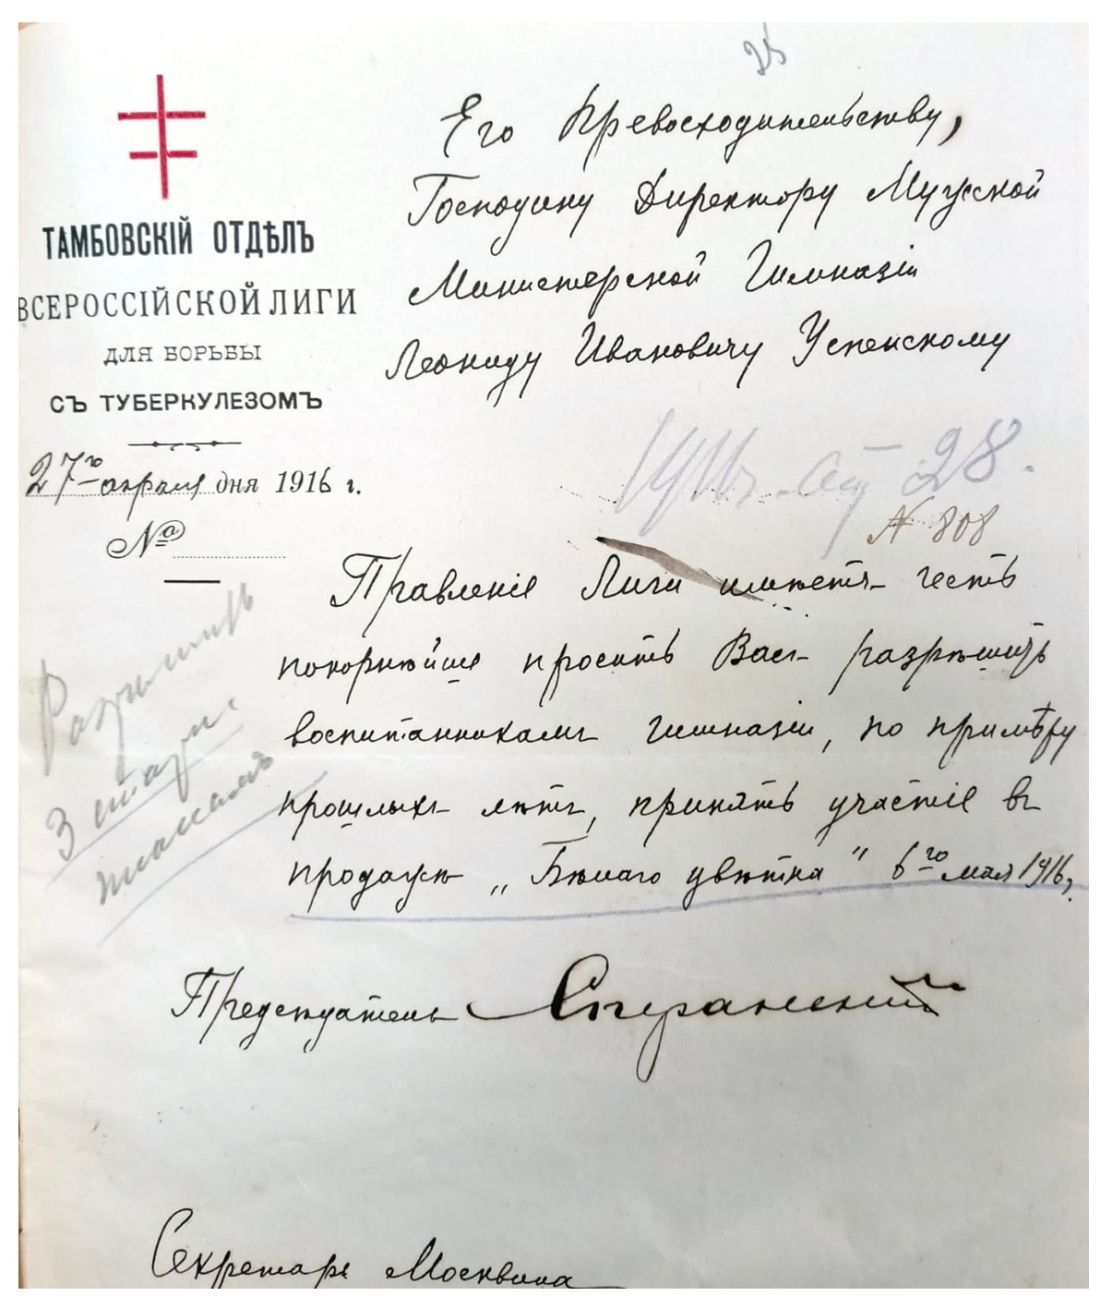 ТАМБОВСКІЙ ОТДѢЛЪ
ВСЕРОССІЙСКОЙ ЛИГИ
ДЛЯ БОРЬБЫ
СЪ ТУБЕРКУЛЕЗОМЪ
27го апрѣля дня 1916 г.
№
Его Превосходительству,
Господину Директору Мужской
Министерской Гимназіи
Леониду Ивановичу Успенскому
28.
N 808
Правленіе Лиги имѣетъ честь
покорнѣйше просить Васъ разрѣшить
воспитанникамъ гимназіи, по примѣру
прошлыхъ лѣтъ, принять участіе въ
продажѣ „Бѣлаго цвѣтка" 6го мая 1916,
Разрѣшить
3 старш.
классамъ
Предсѣдатель Сперанский
Секретарь Москвина